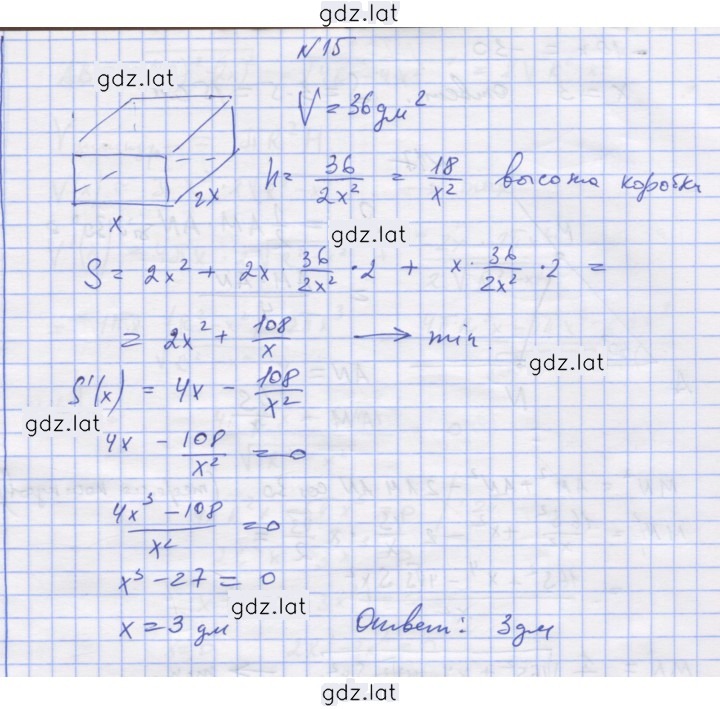 gdz.lat
N15
gdz.lat
V = 36 дм²
h = 36/2x² = 18/x² высота коробки
2x
x
gdz.lat
S = 2x² + 2x · 36/2x² · 2 + x · 36/2x² · 2 =
= 2x² + 108/x → min.
gdz.lat
S'(x) = 4x - 108/x²
gdz.lat
4x - 108/x² = 0
(4x³ - 108)/x² = 0
x³ - 27 = 0
gdz.lat
x = 3 дм Ответ: 3 дм
gdz.lat